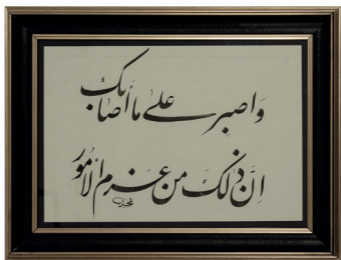 وَاصبر علیٰ ما أصابک
اِنَّ ذٰلکَ من عَزمِ الأمُور